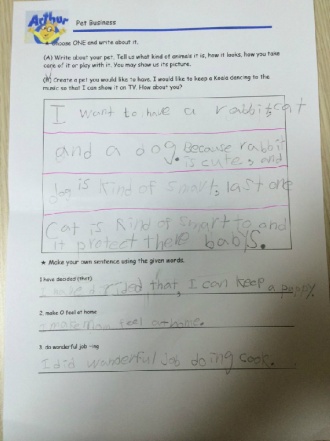 Arthur
Pet Business
★ Choose ONE and write about it.
(A) Write about your pet. Tell us what kind of animals it is, how it looks, how you take
care of it or play with it. You may show us its picture.
(B) Create a pet you would like to have. I would like to keep a Koala dancing to the
music so that I can show it on TV. How about you?
I want to have a rabbit, cat
and a dog. Because rabbit
is cute, and
dog is kind of smart, last one
Cat is kind of smart to and
it protect there babys.
★ Make your own sentence using the given words.
1. have decided (that)
I have drided that, I can keep a puppy.
2. make O feel at home
feel at home.
3. do wonderful job -ing
I did wonderful job doing cook.